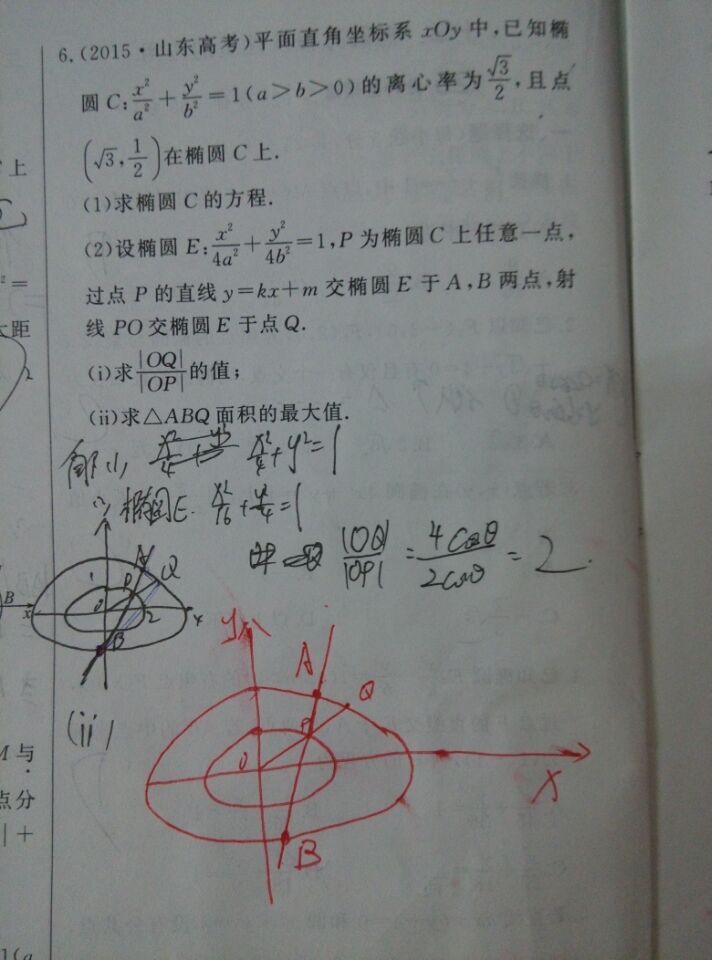 6.(2015·山东高考)平面直角坐标系 xOy 中,已知椭
圆 C:x²/a²+y²/b²=1(a>b>0)的离心率为√3/2,且点
(√3,1/2)在椭圆 C 上.
(1)求椭圆 C 的方程.
(2)设椭圆 E:x²/4a²+y²/4b²=1,P 为椭圆 C 上任意一点,
过点 P 的直线 y=kx+m 交椭圆 E 于 A,B 两点,射
线 PO 交椭圆 E 于点 Q.
(i)求|OQ|/|OP|的值;
(ii)求△ABQ 面积的最大值.
x²/4+y²=1
椭圆E x²/16+y²/4=1
|OQ|/|OP|=4cosθ/2cosθ=2.
A
Q
P
B
2
4
(ii)
y
A
Q
P
O
x
B
上
=
大距
B
M 与
点分
|+